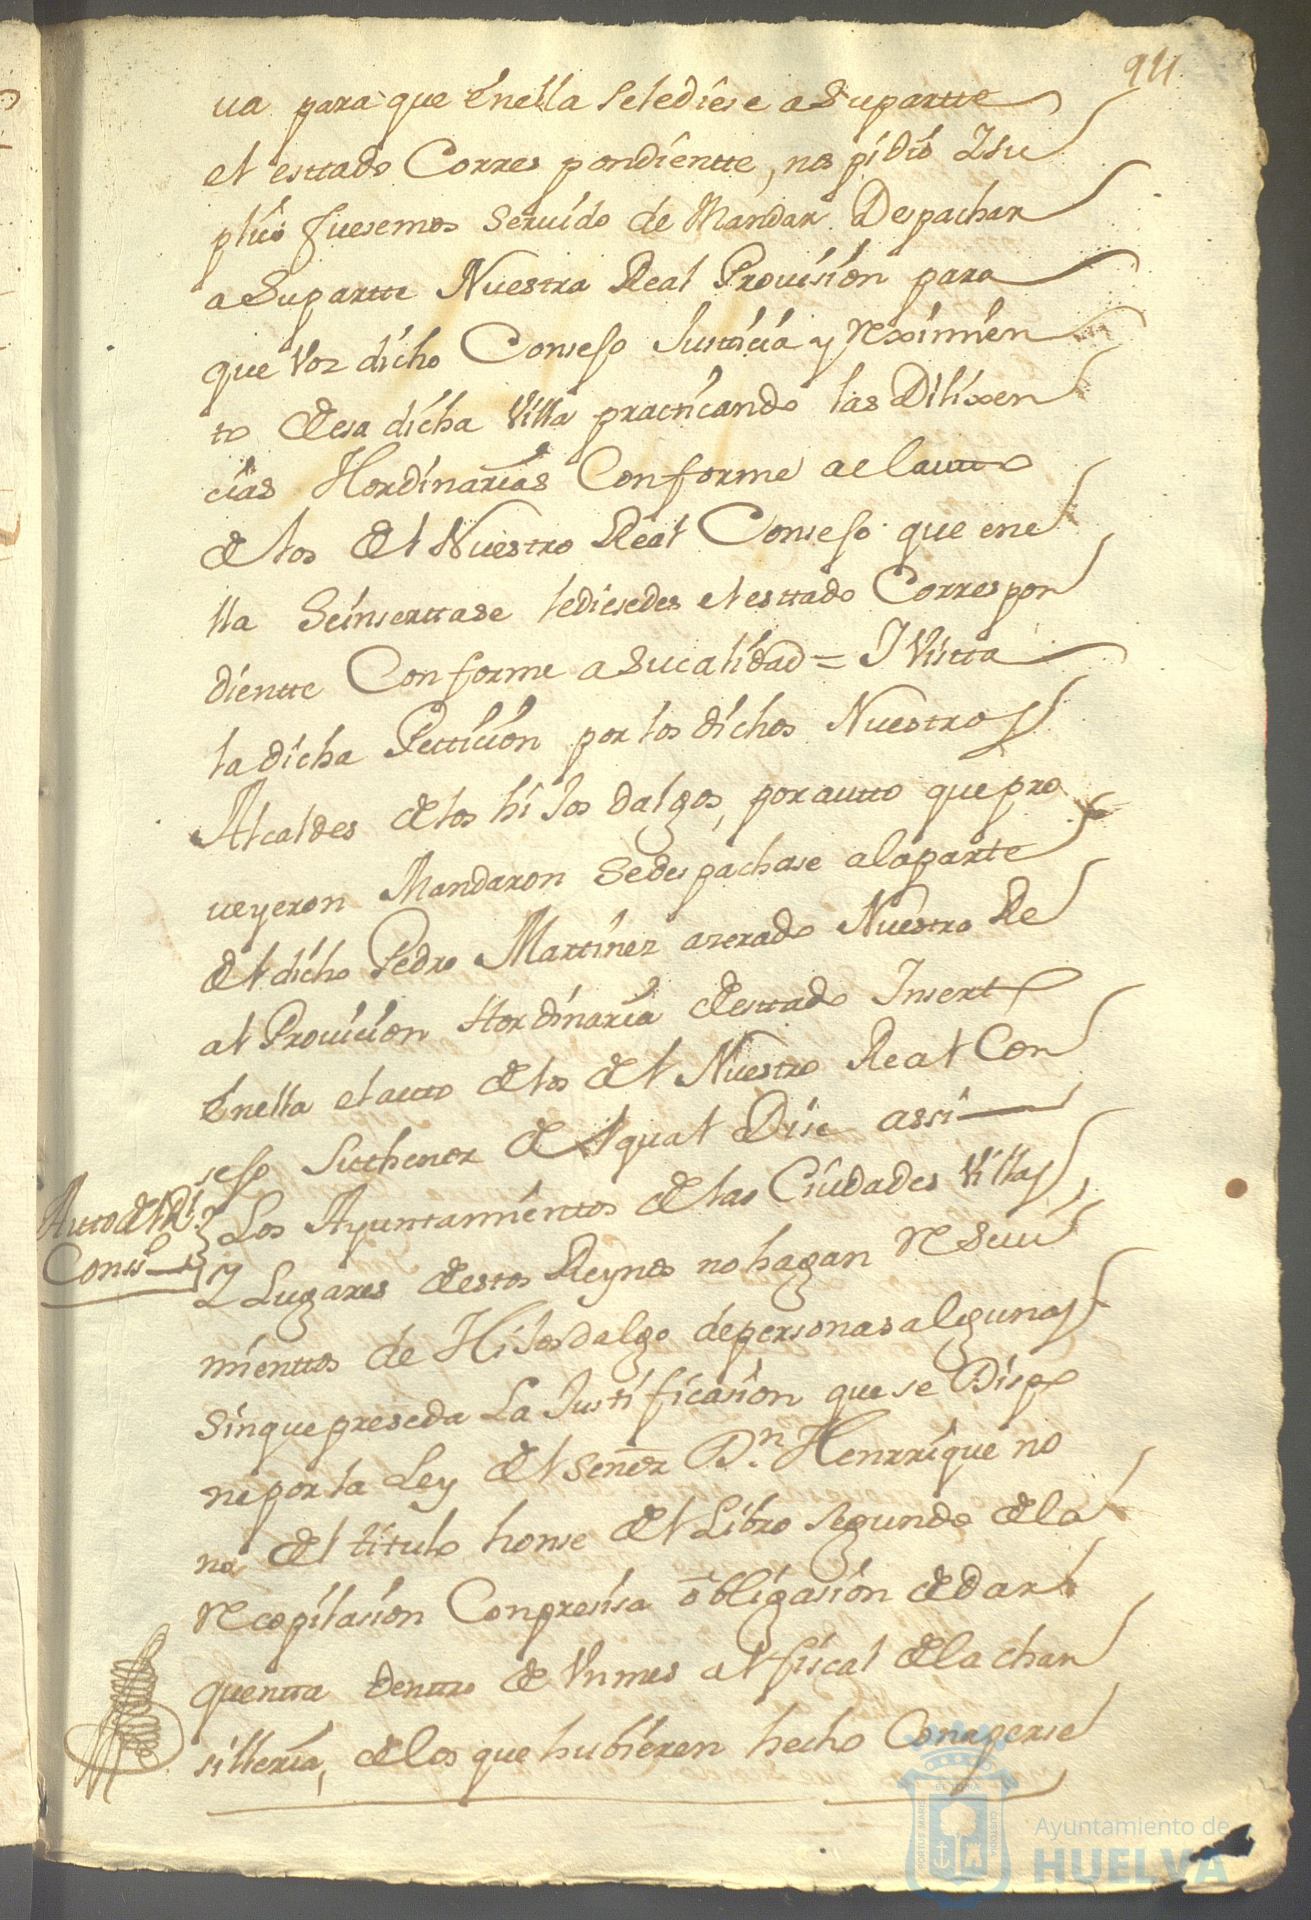 94
ua para que enella selediese a Supartte
el esttado Corres pondientte, nos pidio Y su
plico fuesemos seruido de Mandar Despachar
a Supartte Nuestra Real Prouision para
que Voz dicho Consejo Justicia y Reximien
to de esa dicha Villa practicando las Dilixen
cias Hordinarias Conforme ael autto
de los del Nuestro Real Consejo que ene
lla Seinserttase lediesedes el esttado Correspon
dientte Conforme a Sucalidad = I Vistta
la dicha Petticion por los dichos Nuestros
Alcaldes delos hi Jos dalgos, por autto que pro
ueyeron Mandaron Sedespachase alaparte
del dicho Pedro Martinez azerado Nuestra Re
al Prouicion Hordinaria desttado Insert
Enella el autto delos del Nuestro Real Con
sejo Suthenor del qual Dise assi
Auto del Rl
Consº
Los Ayuntamienttos delas Ciudades Villas
Y Lugares destos Reynos no hagan Resciui
mienttos de Hijosdalgo depersonas algunas
Sinque preseda La Justificasion que se Dispo
ne por la Ley del Señor Dn. Henrrique no
na del titulo honse del Libro segundo dela
Recopilasion Conpresisa obligasion dedar
quentta denttro de Vnmes al fiscal dela chan
silleria, delos que hubieren hecho Conaperse
Ayuntamiento de
HUELVA